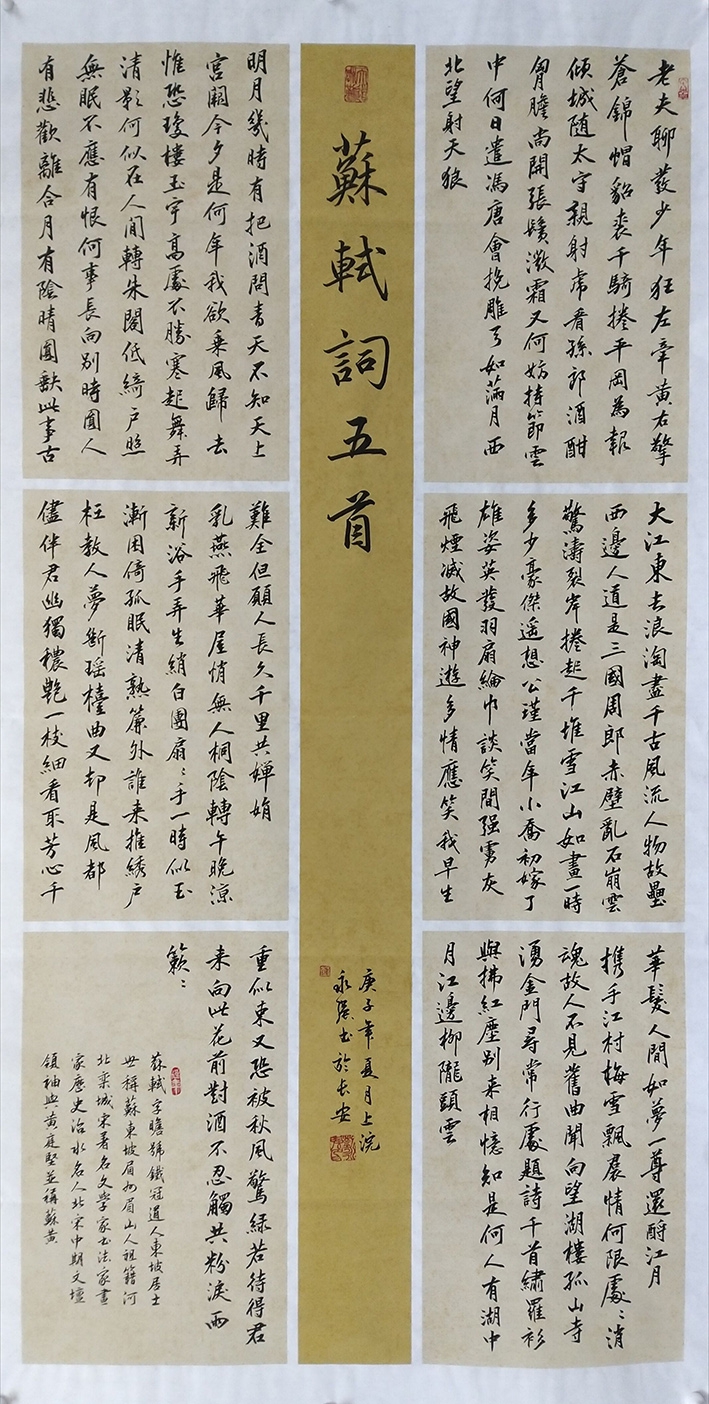 老夫聊發少年狂左牽黃右擎
蒼錦帽貂裘千騎捲平岡為報
傾城随太守親射虎看孫郎酒酣
胷膽尚開張鬢微霜又何妨持節雲
中何日遣馮唐會挽雕弓如滿月西
北望射天狼
大江東去浪淘盡千古風流人物故壘
西邊人道是三國周郎赤壁亂石崩雲
驚濤裂岸捲起千堆雪江山如畫一時
多少豪傑遥想公瑾當年小喬初嫁了
雄姿英發羽扇綸巾談笑間强虜灰
飛煙滅故國神遊多情應笑我早生
華髮人間如夢一尊還酹江月
携手江村梅雪飄裠情何限處〻消
魂故人不見舊曲聞向望湖樓孤山寺
湧金門尋常行處題詩千首繡羅衫
與拂紅塵别来相憶知是何人有湖中
月江邊柳隴頭雲
蘇軾詞五首
庚子年夏月上浣
永强书於长安
明月幾時有把酒問青天不知天上
宫闕今夕是何年我欲乘風歸去
惟恐瓊樓玉宇高處不勝寒起舞弄
清影何似在人间轉朱閣低綺户照
無眠不應有恨何事長向别時圓人
有悲歡離合月有陰晴圓缺此事古
難全但願人長久千里共嬋娟
乳燕飛華屋悄無人桐陰轉午晚涼
新浴手弄生綃白團扇〻手一時似玉
漸困倚孤眠清熟簾外誰来推繡户
枉教人夢斷瑶檯曲又却是風都
儘伴君幽獨穠艷一枝細看取芳心千
重似束又恐被秋風驚緑若待得君
来向此花前對酒不忍觸共粉淚兩
簌〻
苏軾字子瞻號鐵冠道人東坡居士
世稱蘇東坡眉州眉山人祖籍河
北欒城宋著名文學家书法家畫
家歷史治水名人北宋中期文壇
領袖與黄庭堅並稱蘇黄